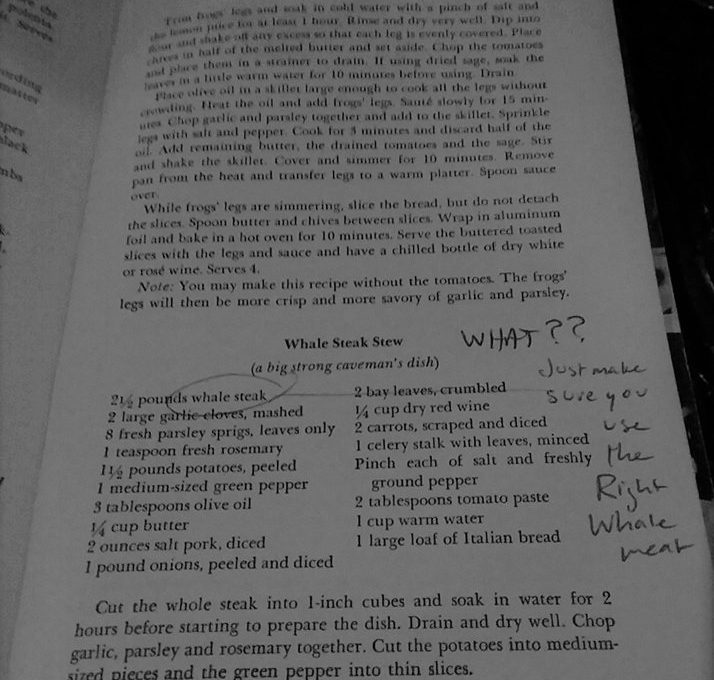 the
potentia
t. Serves
ording
matter
pper
black
mbs
k.
Trim frogs' legs and soak in cold water with a pinch of salt and
the lemon juice for at least 1 hour. Rinse and dry very well. Dip into
flour and shake off any excess so that each leg is evenly covered. Place
chives in half of the melted butter and set aside. Chop the tomatoes
and place them in a strainer to drain. If using dried sage, soak the
leaves in a little warm water for 10 minutes before using. Drain.
Place olive oil in a skillet large enough to cook all the legs without
crowding. Heat the oil and add frogs' legs. Sauté slowly for 15 min-
utes. Chop garlic and parsley together and add to the skillet. Sprinkle
legs with salt and pepper. Cook for 3 minutes and discard half of the
oil. Add remaining butter, the drained tomatoes and the sage. Stir
and shake the skillet. Cover and simmer for 10 minutes. Remove
pan from the heat and transfer legs to a warm platter. Spoon sauce
over.
While frogs' legs are simmering, slice the bread, but do not detach
the slices. Spoon butter and chives between slices. Wrap in aluminum
foil and bake in a hot oven for 10 minutes. Serve the buttered toasted
slices with the legs and sauce and have a chilled bottle of dry white
or rosé wine. Serves 4.
Note: You may make this recipe without the tomatoes. The frogs'
legs will then be more crisp and more savory of garlic and parsley.
Whale Steak Stew
WHAT??
(a big strong caveman's dish)
2½ pounds whale steak
2 large garlic cloves, mashed
8 fresh parsley sprigs, leaves only
1 teaspoon fresh rosemary
1½ pounds potatoes, peeled
1 medium-sized green pepper
3 tablespoons olive oil
¼ cup butter
2 ounces salt pork, diced
1 pound onions, peeled and diced
2 bay leaves, crumbled
¼ cup dry red wine
2 carrots, scraped and diced
1 celery stalk with leaves, minced
Pinch each of salt and freshly
ground pepper
2 tablespoons tomato paste
1 cup warm water
1 large loaf of Italian bread
Just make
sure you
use
the
Right
Whale
meat
Cut the whole steak into 1-inch cubes and soak in water for 2
hours before starting to prepare the dish. Drain and dry well. Chop
garlic, parsley and rosemary together. Cut the potatoes into medium-
sized pieces and the green pepper into thin slices.